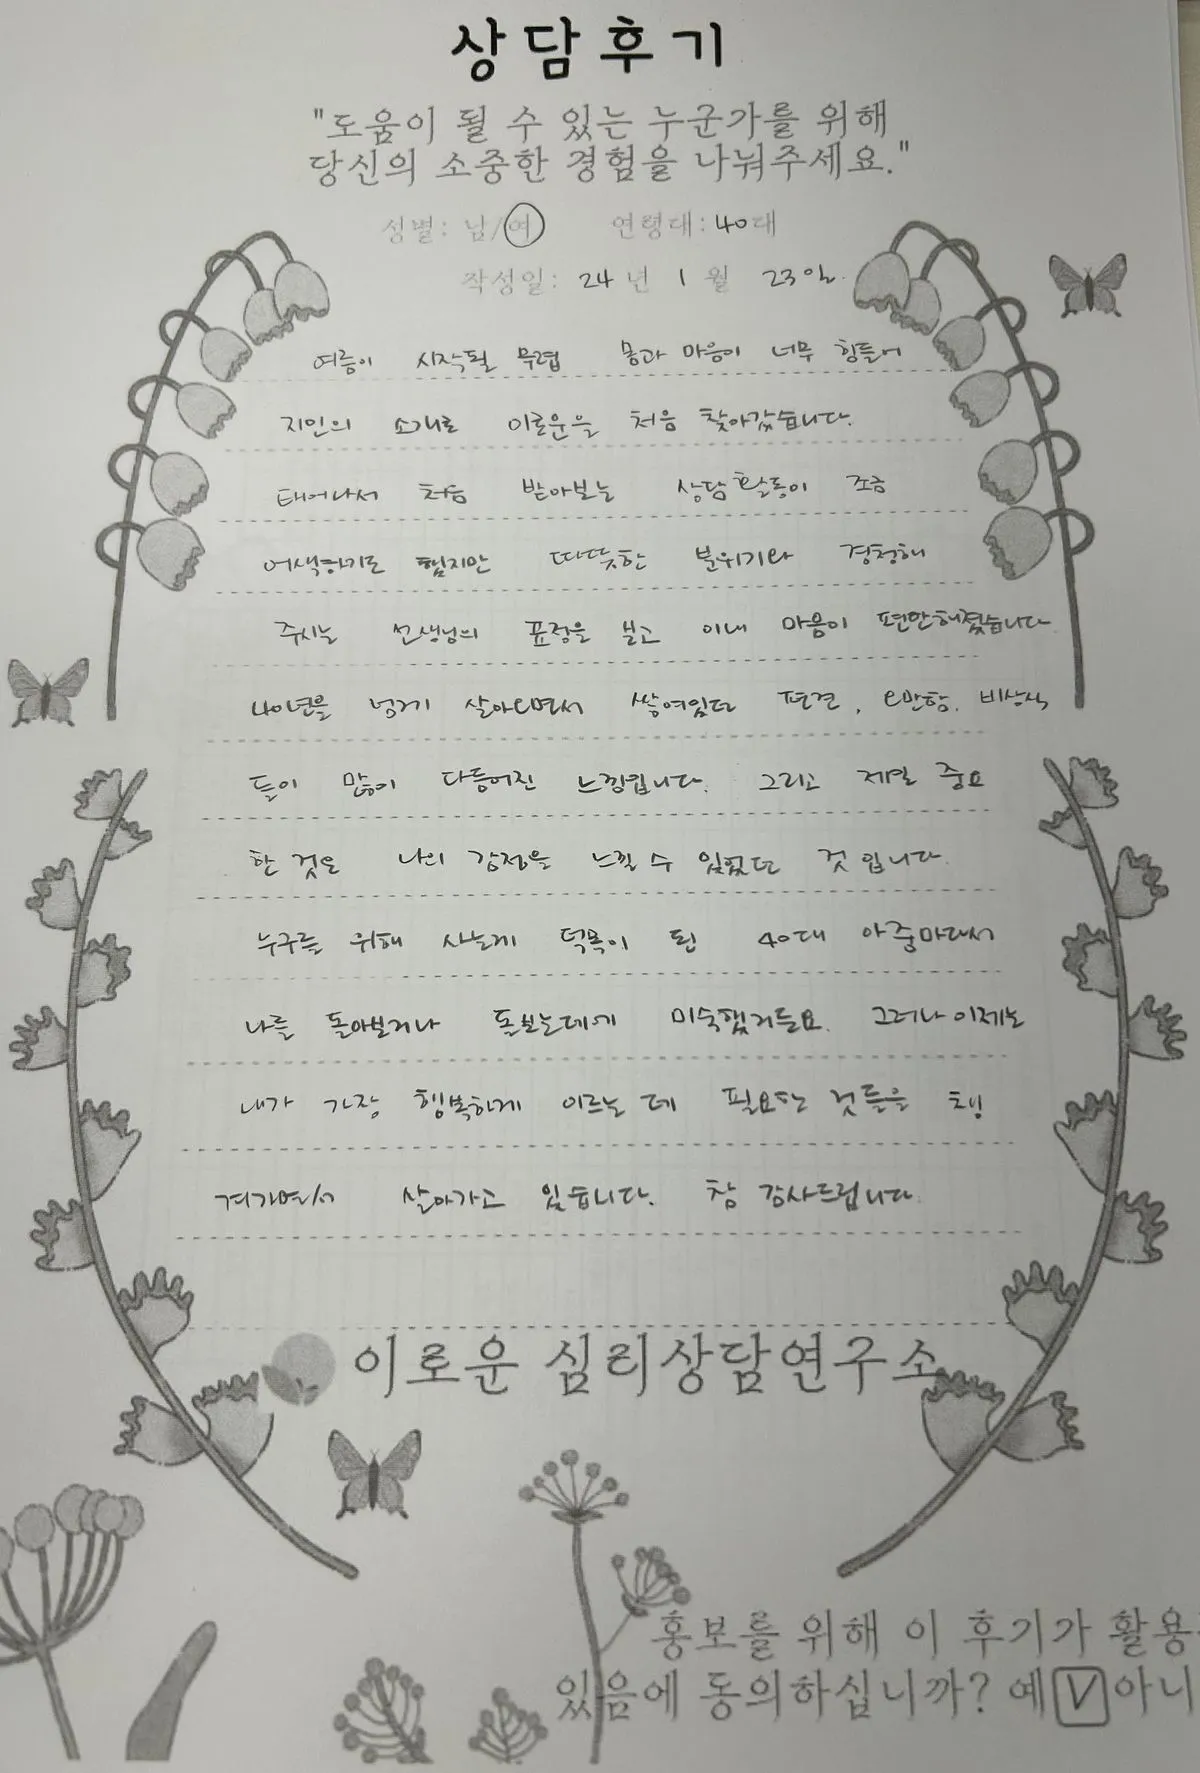 상담후기
"도움이 될 수 있는 누군가를 위해
당신의 소중한 경험을 나눠주세요."
성별: 남/여 연령대: 40대
작성일: 24년 1월 23일.
여름이 시작될 무렵 몸과 마음이 너무 힘들어
지인의 소개로 이로운을 처음 찾아갔습니다.
태어나서 처음 받아보는 상담활동이 조금
어색하기도 했지만 따뜻한 분위기와 경청해
주시는 선생님의 표정을 보고 이내 마음이 편안해졌습니다
40년을 넘게 살아오면서 쌓여있던 편견, 오만함, 비상식
들이 많이 다듬어진 느낌입니다. 그리고 제일 중요
한 것은 나의 감정을 느낄 수 있었던 것 입니다.
누구를 위해 사는게 덕목이 된 40대 아줌마라서
나를 돌아보거나 돌보는데에 미숙했거든요. 그러나 이제는
내가 가장 행복하게 이르는 데 필요한 것들을 챙
겨가면서 살아가고 있습니다. 참 감사드립니다.
이로운 심리상담연구소
홍보를 위해 이 후기가 활용
있음에 동의하십니까? 예 V 아니